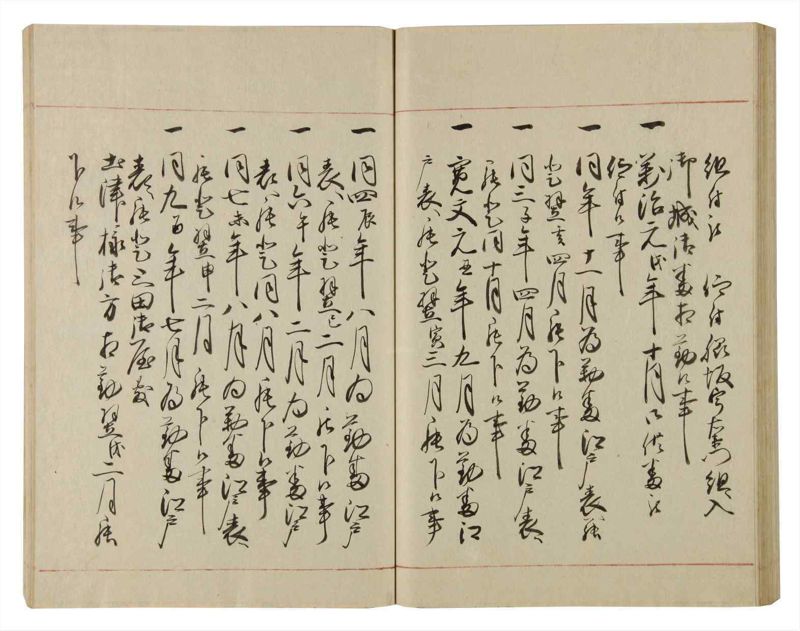 組付江　仰付　組入
御城御番相勤候事
一　万治元戌年十月御供番江
仰付候事
一　同年十一月為勤番江戸表罷
登翌亥四月罷下候事
一　同三子年四月為勤番江戸表へ
罷登同十月罷下候事
一　寛文元丑年九月為勤番江
戸表へ罷登翌寅三月罷下候事
一　同四辰年八月為勤番江戸
表へ罷登翌巳二月罷下候事
一　同六午年二月為勤番江戸
表へ罷登同八月罷下候事
一　同七未年八月為勤番江戸表へ
罷登翌申二月罷下候事
一　同九酉年七月為勤番江戸
表へ罷登三田御屋敷
土津様御方相勤翌戌二月罷
下候事